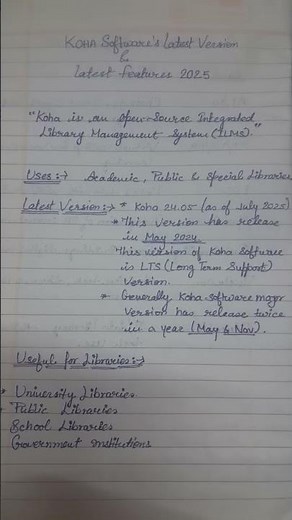 KOHA Software's Latest Version
&
Latest features 2025
"Koha is an Open-Source Integrated
Library Management System (ILMS)."
Uses:→ Academic, Public & Special Libraries
Latest Version:→ * Koha 24.05 (as of July 2025)
* This version has release
in May 2024.
This version of Koha Software
is LTS (Long Term Support)
Version.
* Generally Koha software major
version has release twice
in a year (May & Nov).
Useful for Libraries:→
* University Libraries
* Public Libraries
School Libraries
Government institutions